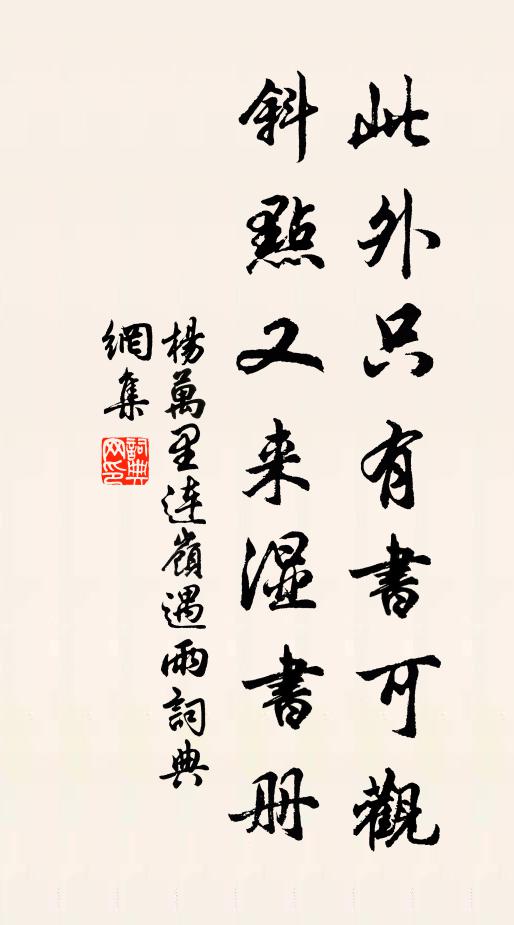 此外只有書可觀
斜點又来湿書册
楊萬里連嶺遇雨詞典
網集
詞典
网印